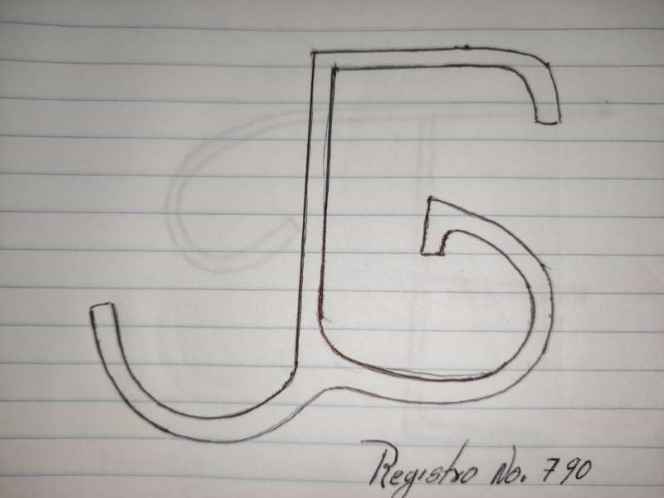 Registro No. 790